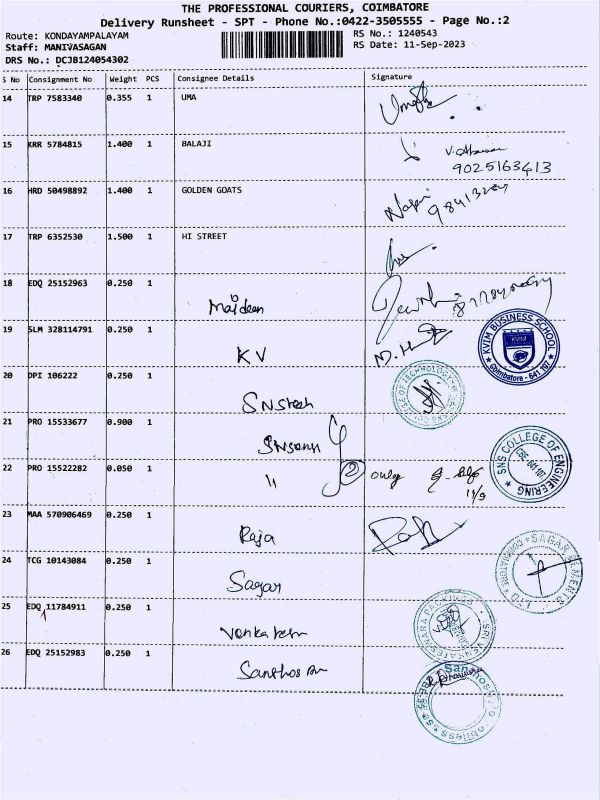 THE PROFESSIONAL COURIERS, COIMBATORE
Delivery Runsheet - SPT - Phone No.:0422-3505555 - Page No.:2
Route: KONDAYAMPALAYAM RS No.: 1240543
Staff: MANIVASAGAN RS Date: 11-Sep-2023
DRS No.: DCJB124054302
S No Consignment No Weight PCS Consignee Details Signature
14 TRP 7583340 0.355 1 UMA
15 KRR 5784815 1.400 1 BALAJI
9025163413
16 HRD 50498892 1.400 1 GOLDEN GOATS
17 TRP 6352530 1.500 1 HI STREET
18 EDQ 25152963 0.250 1 Maideen
19 SLM 328114791 0.250 1 KV
KVIM BUSINESS SCHOOL
KVIM
Coimbatore - 641 107
20 DPI 106222 0.250 1 SNStech
COLLEGE OF TECHNOLOGY
21 PRO 15533677 0.900 1
SNS COLLEGE OF ENGINEERING
CBE-641 107
22 PRO 15522282 0.050 1 " 2 only
11/9
23 MAA 570906469 0.250 1 Raja
24 TCG 10143084 0.250 1 Sagar
SAGAR CEMENTS
25 EDQ 11784911 0.250 1 Venkatesh
SRI VENKATESWARA
26 EDQ 25152983 0.250 1